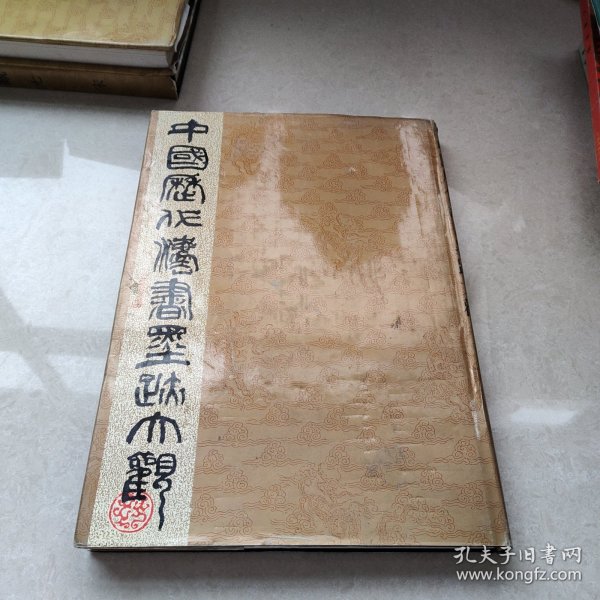 中國歷代灋書墨跡大觀
孔夫子旧书网
www.kongfz.com